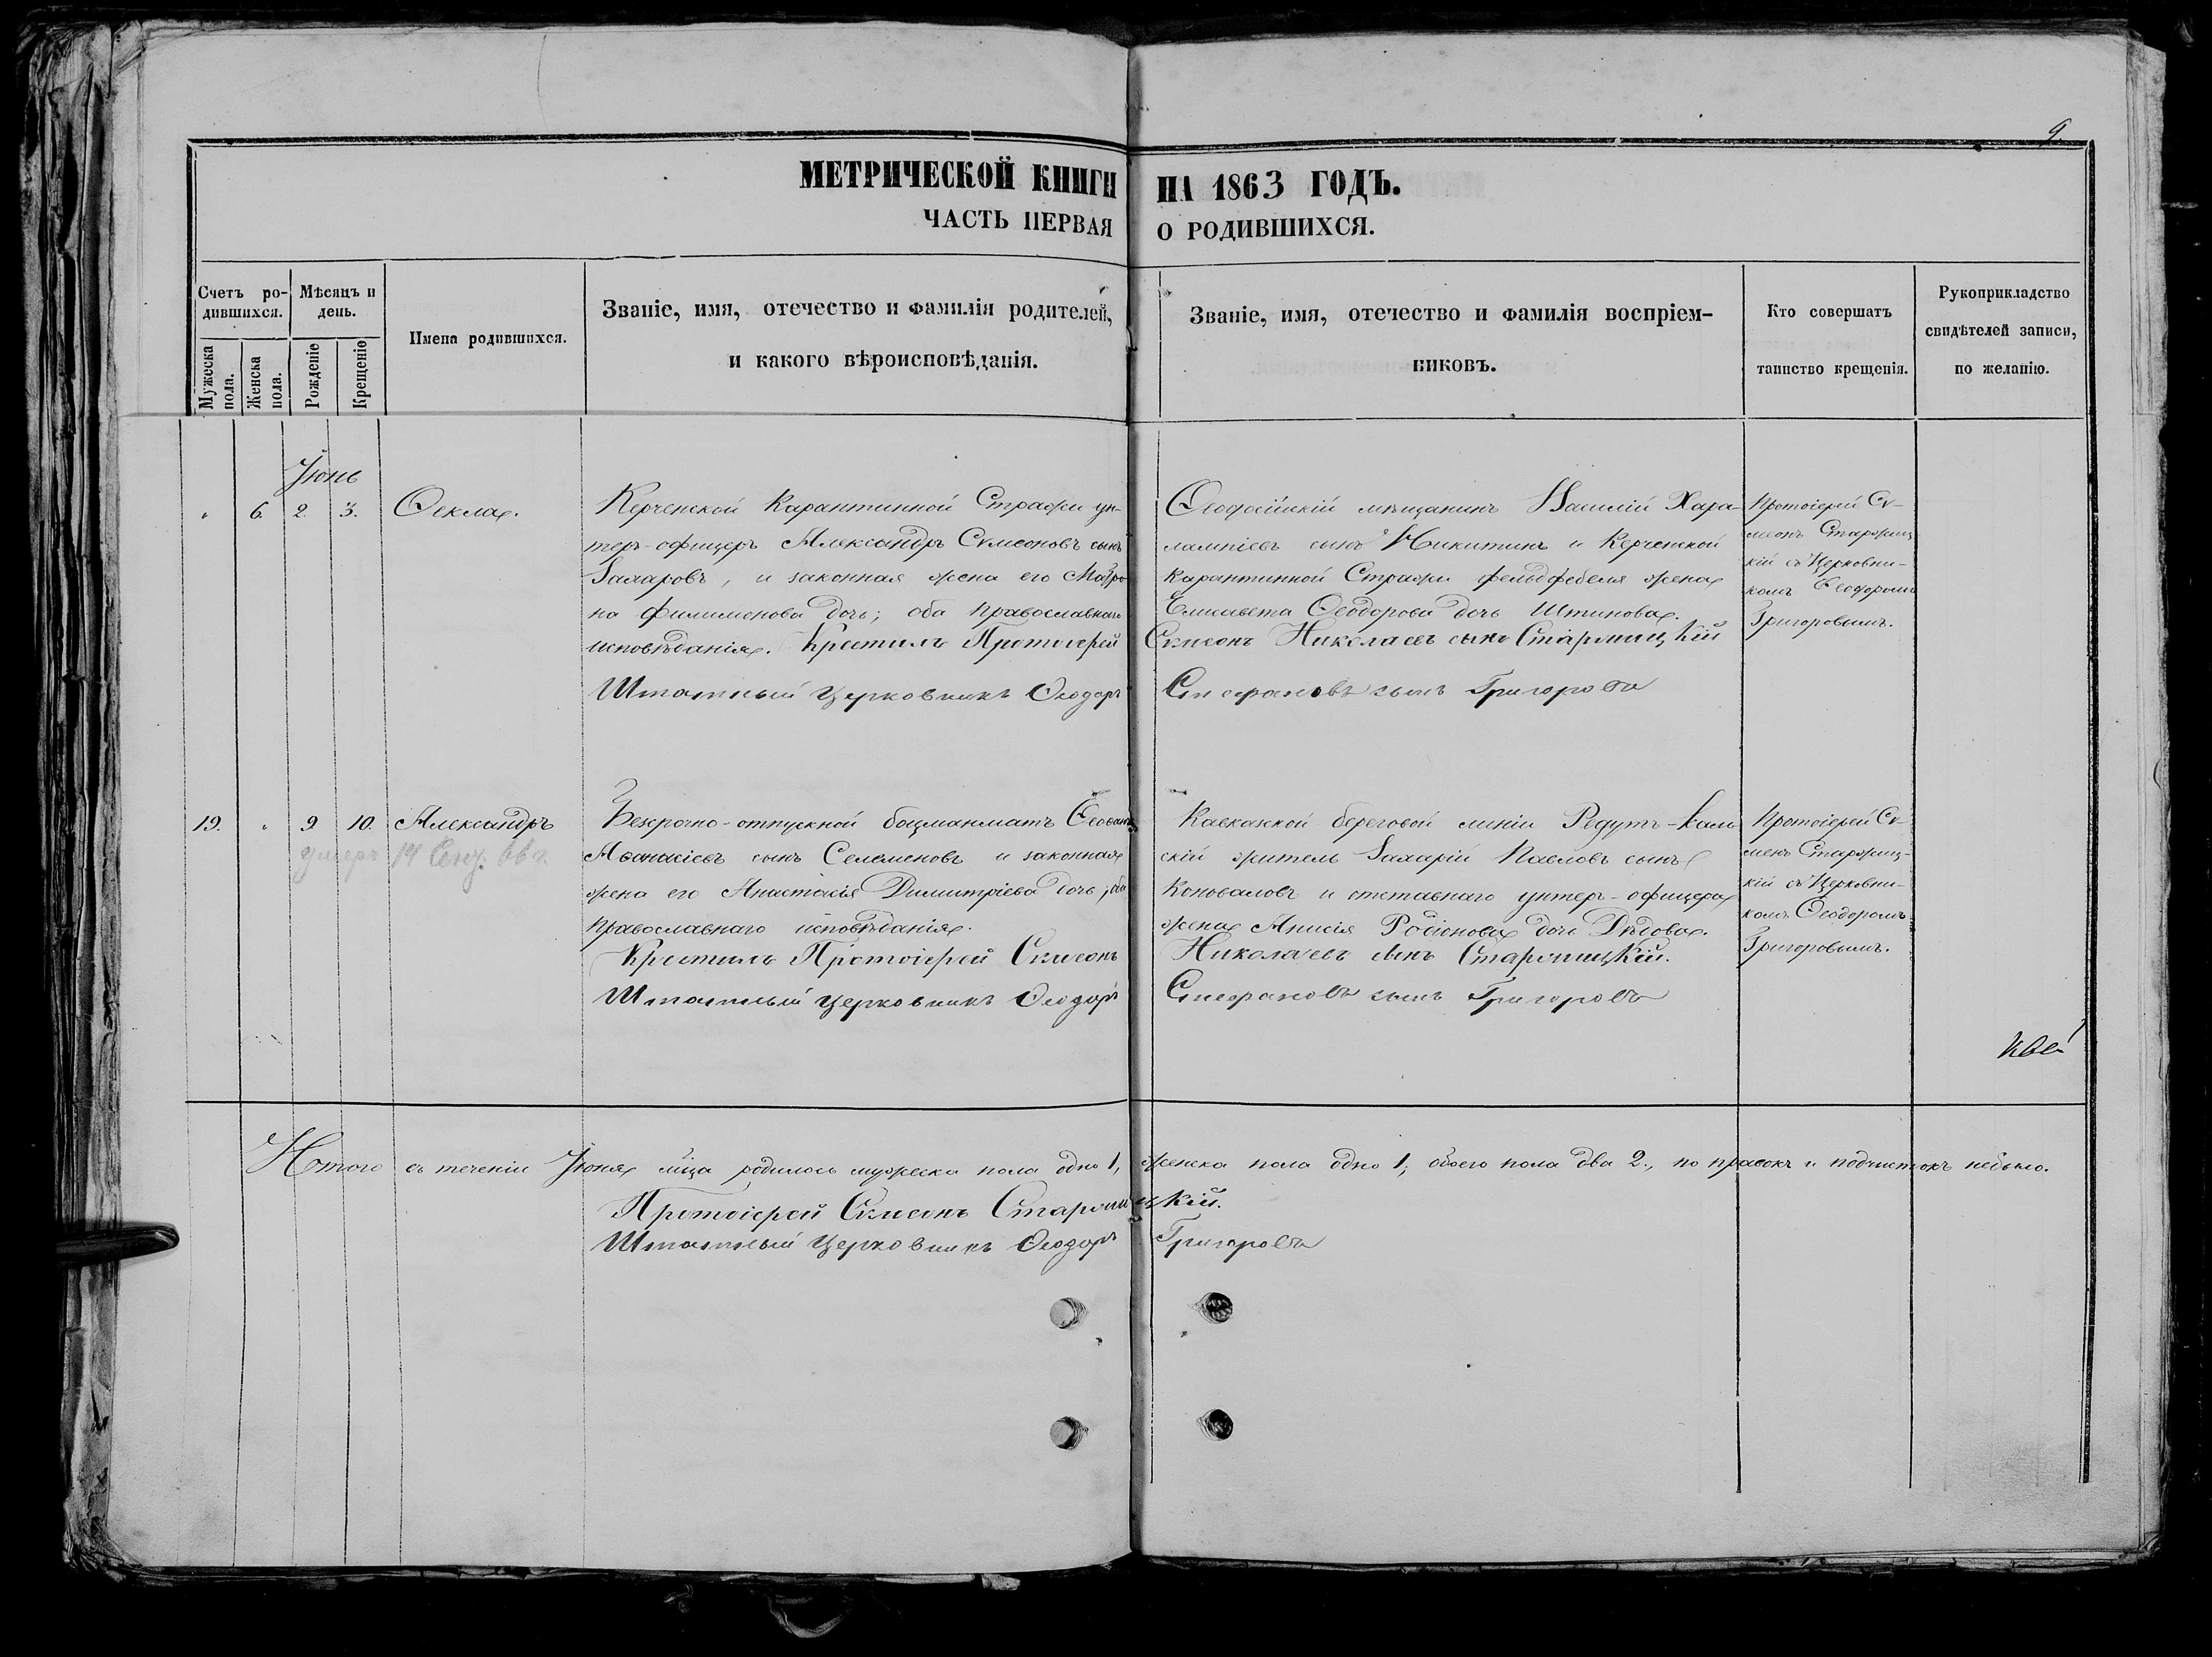 9
МЕТРИЧЕСКОЙ КНИГИ НА 1863 ГОДЪ.
ЧАСТЬ ПЕРВАЯ О РОДИВШИХСЯ.
Счетъ родившихся.
Мужеска пола.
Женска пола.
Мѣсяцъ и день.
Рожденіе
Крещеніе
Имена родившихся.
Званіе, имя, отечество и фамилія родителей,
и какого вѣроисповѣданія.
Званіе, имя, отечество и фамилія воспріем-
никовъ.
Кто совершатъ
таинство крещенія.
Рукоприкладство
свидѣтелей записи,
по желанію.
Іюнь
" 6. 2. 3. Ѳекла.
Керченской Карантинной Стражи ун-
теръ-офицеръ Александръ Сѵмеоновъ сынъ
Захаровъ, и законная жена его Матро
на Филимонова дочь; оба православнаго
исповѣданія. Крестилъ Протоіерей
Штатный церковникъ Ѳеодоръ
Ѳеодосійскій мѣщанинъ Василій Хара-
лампіевъ сынъ Никитинъ и Керченской
Карантинной Стражи фельдфебеля жена
Елисавета Ѳеодорова дочь Штинова.
Сѵмеонъ Николаевъ сынъ Старжицкій
Стефановъ сынъ Григоровъ
Протоіерей Сѵ-
меонъ Старжиц
кій съ Церковни-
комъ Ѳеодоромъ
Григоровымъ.
19. " 9 10. Александръ
умеръ 14 Сент. 66 г.
Безсрочно-отпускной боцманматъ
Аѳанасіевъ сынъ Селеменовъ и законная
жена его Анастасія Димитріева дочь; оба
православнаго исповѣданія.
Крестилъ Протоіерей Сѵмеонъ
Штатный церковникъ Ѳеодоръ
Кавказкой береговой линіи Редутъ-Каль
скій житель Захарій Павловъ сынъ
Коноваловъ и отставнаго унтеръ-офицера
жена Анисія Родіонова дочь Дѣдова.
Николаевъ сынъ Старжицкій.
Стефановъ сынъ Григоровъ
Протоіерей Сѵ-
меонъ Старжиц-
кій съ Церковни-
комъ Ѳеодоромъ
Григоровымъ.
Итого въ теченіи Іюня мѣца родилось мужеска пола одно 1, женска пола одно 1; обоего пола два 2., по правокъ и подчистокъ небыло.
Протоіерей Сѵмеонъ Старжицкій.
Штатный церковникъ Ѳеодоръ Григоровъ